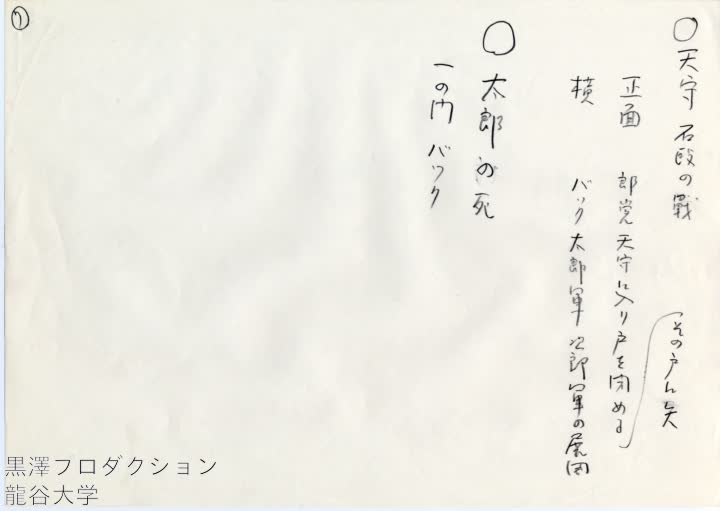 ○天守 石段の戰
(その戸に矢
正面 郎党天守に入り戸を閉める)
横 バック太郎軍次郎軍の展図
○太郎の死
一の门 バック
黒澤フロダクション
龍谷大学